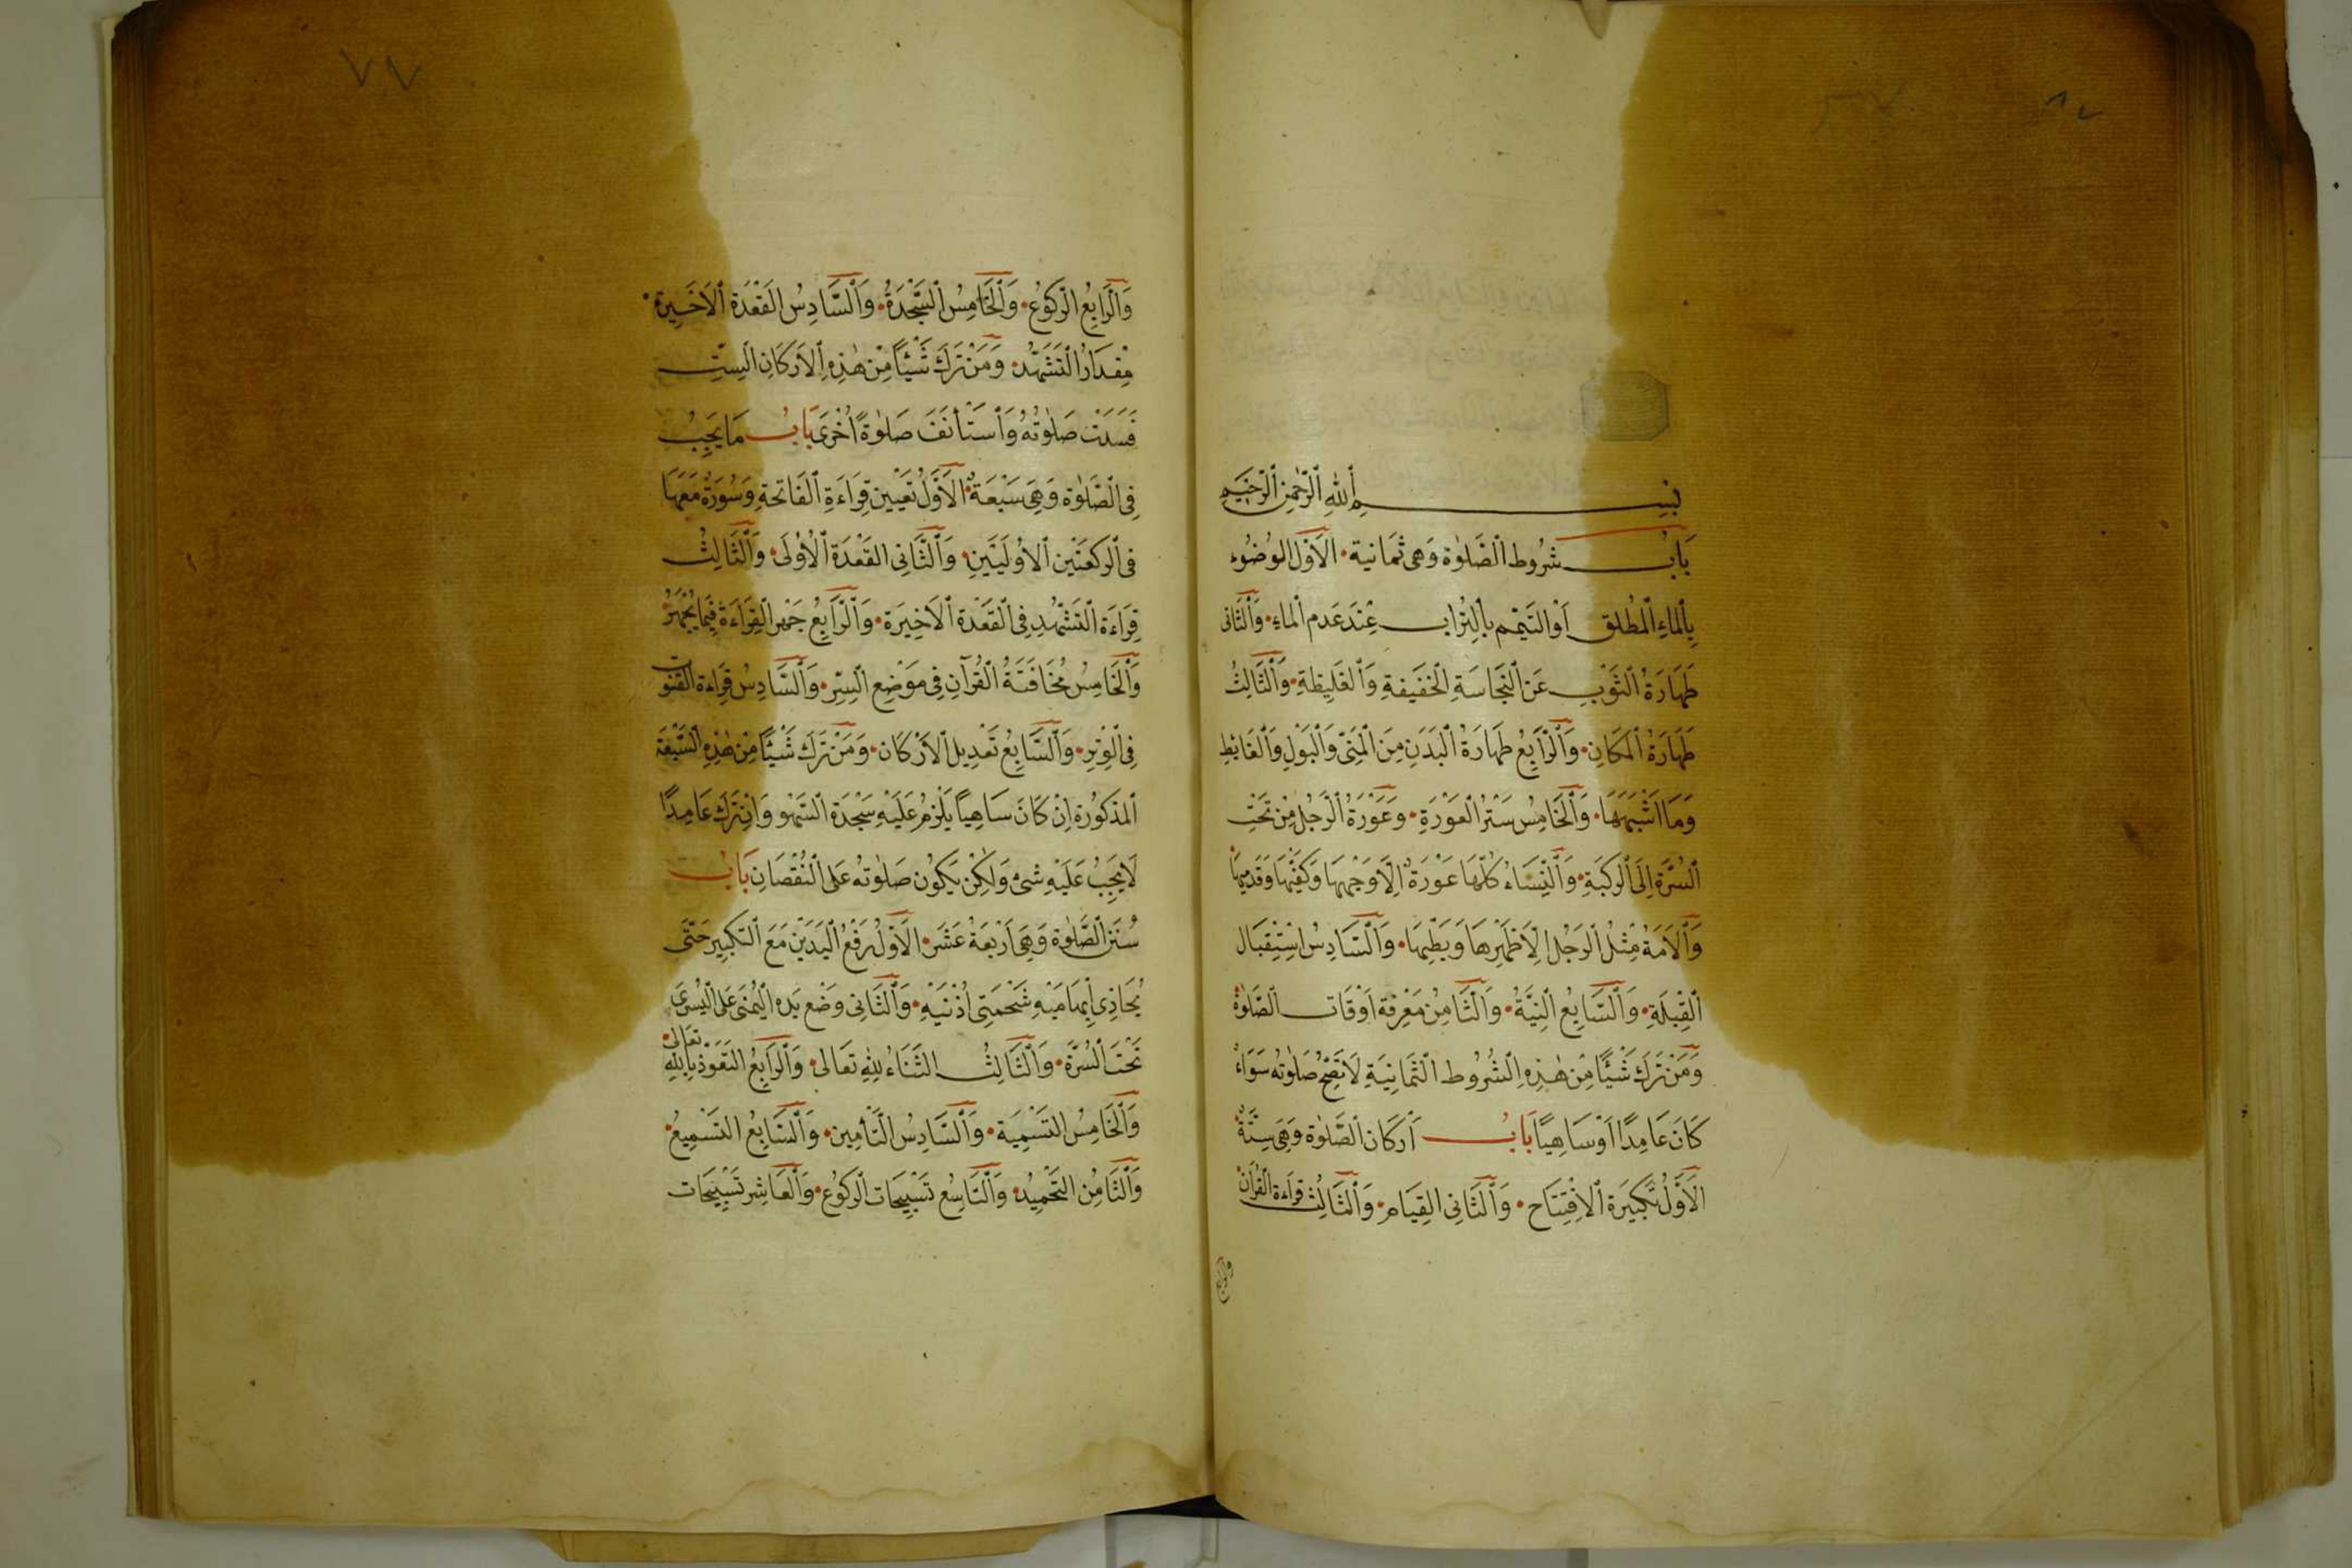 بِسْمِ ٱللهِ ٱلرَّحْمٰنِ ٱلرَّحِيمِ
بَابُ شُرُوط ٱلصَّلٰوة وَهِى ثَمَانية ٠ الَاوّل الوُضُوء
بِٱلماءِ ٱلمُطْلق اَوالتيمّم بٱلتُراب عِنْدَ عَدم ٱلماءِ ٠ وَٱلثَّانى
طَهَارَةُ ٱلثَوْبِ عَن ٱلنَجَاسَةِ ٱلخَفيفةِ وَٱلغَليظةِ ٠ وَٱلثَّالِثُ
طَهَارَةُ ٱلمَكَانِ ٠ وَٱلرَّابِعُ طَهارَةُ ٱلبَدَنِ مِنَ ٱلْمَنِىّ وَٱلبَوْلِ وَٱلغَائطِ
وَمَا اَشْبَهَهَا ٠ وَٱلخَامِسُ سَتْرُ ٱلعَوْرَةِ ٠ وَعَوْرَةُ ٱلرَجُل مِنْ تَحْتِ
ٱلسُرَّة اِلَى ٱلركبَةِ ٠ وَٱلنِّسَاءُ كُلّهَا عَوْرَةٌ اِلَّا وَجْهِهَا وَكَفّيْهَا وَقَدَمِيهَا
وَٱلاَمَةُ مِثْلُ ٱلرَجُل اِلَّا ظَهِرهَا وَبَطِنهَا ٠ وَٱلسَّادِسُ اسْتِقبَال
ٱلقِبْلَةِ ٠ وَٱلسَّابِعُ ٱلنِيَّةُ ٠ وَٱلثَّامِنُ مَعْرِفة اَوْقَات ٱلصَّلوةِ
وَمَنْ تَرَكَ شَيْئًا مِنْ هٰذِهِ ٱلشُرُوط ٱلثَمَانِيَةِ لَا تَصِحُّ صَلٰوتهُ سَوَاءً
كَانَ عَامِدًا اَوْسَاهِيًا بَابُ اَركَان ٱلصَّلٰوة وَهِىَ سِتَّةٌ
الَاَوَّلُ تكبِيَرة ٱلاِفْتِتَاح ٠ وَٱلثَانِى القِيَام ٠ وَٱلثَّالِثُ قراءة القُرآن
وَالرابع
وَٱلرَّابِعُ الرّكوُع ٠ وَٱلخَامِسُ ٱلسَّجْدَةُ ٠ وَٱلسَّادِسُ القَعْدَة ٱلاَخَيرة ٠
مِقدَارُ ٱلتَشَهُّد ٠ وَمَنْ تَرَكَ شَيْئًا مِنْ هٰذِهِ ٱلاَركَانِ السِتّ
فَسَدَت صَلٰوتُهُ وَٱسْتَأنَفَ صَلٰوةً اُخْرىَ بَابُ مَا يَجِبُ
فِى ٱلصَّلٰوة وَهِىَ سَبْعَةٌ ٠ الَاَوَّلُ تعْيين قِرَاءَةِ ٱلفَاتحة وَسُورَةٌ مَعَهَا
فى ٱلركعَتَيْن ٱلاوُلَيَيَنِ ٠ وَٱلثَّانِى القَعْدَة ٱلُاوْلَى ٠ وَٱلثَّالِثُ
قِرَاءَة التَشَهُّدِ فِى ٱلقَعَدْة ٱلاَخِيَرة ٠ وَٱلرَّابِعُ جَهْر ٱلقِرَاءَة فِيمَا يُجْهَرُ
وَٱلخَامِسُ مُخَافَتَةُ ٱلقُرآنِ فِى مَوْضِع ٱلسِّرِ ٠ وَٱلسَّادِسُ قِرَاءة القنُوت
فِى ٱلوِترِ ٠ وَٱلسَّابِعُ تَعْدِيل ٱلاَرْكَان ٠ وَمَنْ تَرَكَ شَيْئًا مِنْ هٰذِهِ ٱلسَّبْعَة
ٱلمذكوُرة اِنْ كَانَ سَاهِيًا يَلْزمُ عَلَيْهِ سَجْدَة ٱلسَّهْو وَاِنْ تَرَكَ عَامِدًا
لَا يَجِبُ عَلَيْهِ شىْ وَلٰكِنْ يَكُون صَلٰوتهُ عَلى ٱلنُقْصَانِ بَابُ
سُنَنِ ٱلصَّلٰوة وَهِىَ اَرْبَعَةَ عَشَر ٠ الَاَوَّلُ رَفْعُ ٱلَيَدَيْنِ مَعَ ٱلتكبِير حَتّى
يُحَاذِى اِبهَامَيْهِ شَحْمَتِى اُذُنَيْهِ ٠ وَٱلثَّانِى وَضْع يَدهِ ٱليُمْنىَ عَلى ٱليُسْرىَ
تَحْتَ ٱلسُرَّة ٠ وَٱلثَّالِثُ الثَنَاءُ لِلّٰهِ تَعَالى ٠ وَٱلرَابِعُ التَعَوّذ بِاللهِ تعَالى ٠
وَٱلخَامِسُ التَسْمِيَة ٠ وَٱلسَّادِسُ التَّأمِين ٠ وَٱلسَّابِعُ التَسْمِيعُ ٠
وَٱلثَّامِنُ التَحْمِيُد ٠ وَٱلتَاسِعُ تَسْبِيحَات ٱلركوُع ٠ وَٱلعَاشِر تَسْبِيَحَات
٧٧